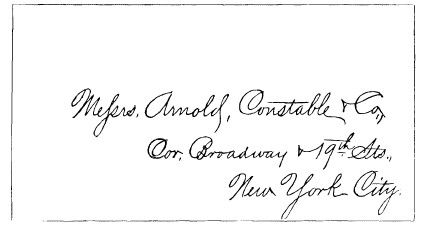 Messrs. Arnold, Constable & Co.,
Cor. Broadway & 19th Sts.,
New York City.